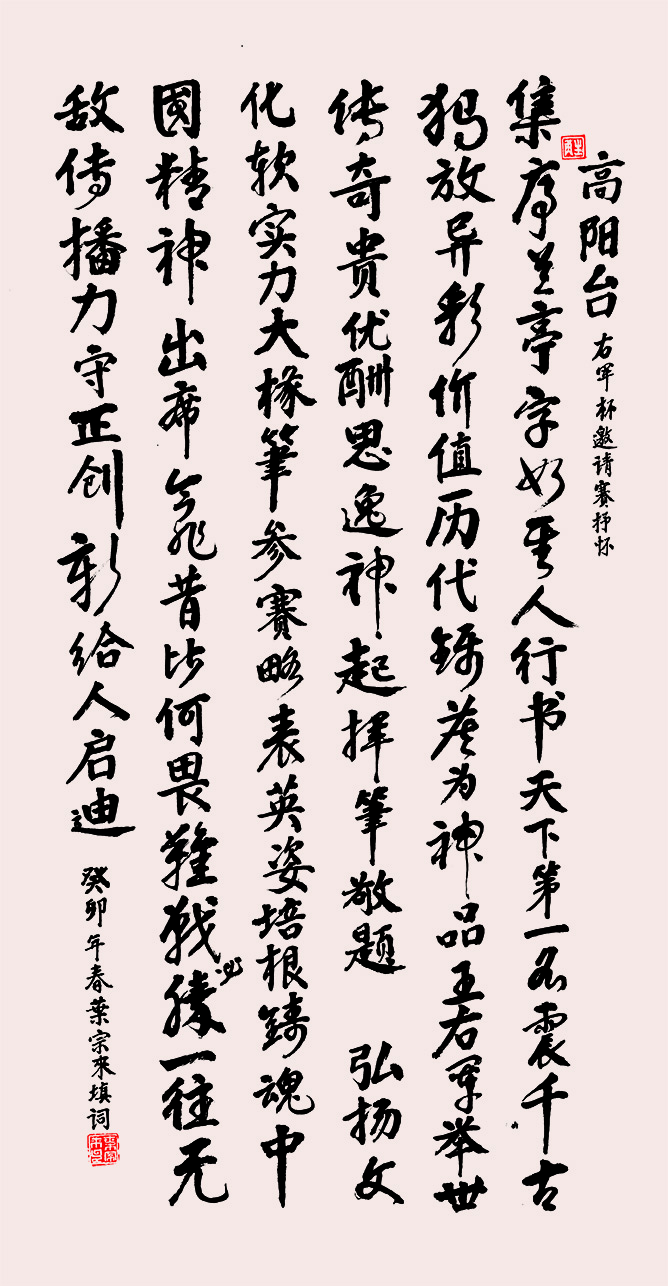 高阳台 右军杯邀请赛抒怀
集序兰亭字如圣人行书天下第一名震千古
独放异彩价值历代镌摹为神品王右军举世
传奇贵优酬思逸神起挥笔敬题 弘扬文
化软实力大椽筆参赛略表英姿培根铸魂中
國精神出席今非昔比何畏難战必勝一往无
敌传播力守正创新给人启迪
癸卯年春葉宗來填词